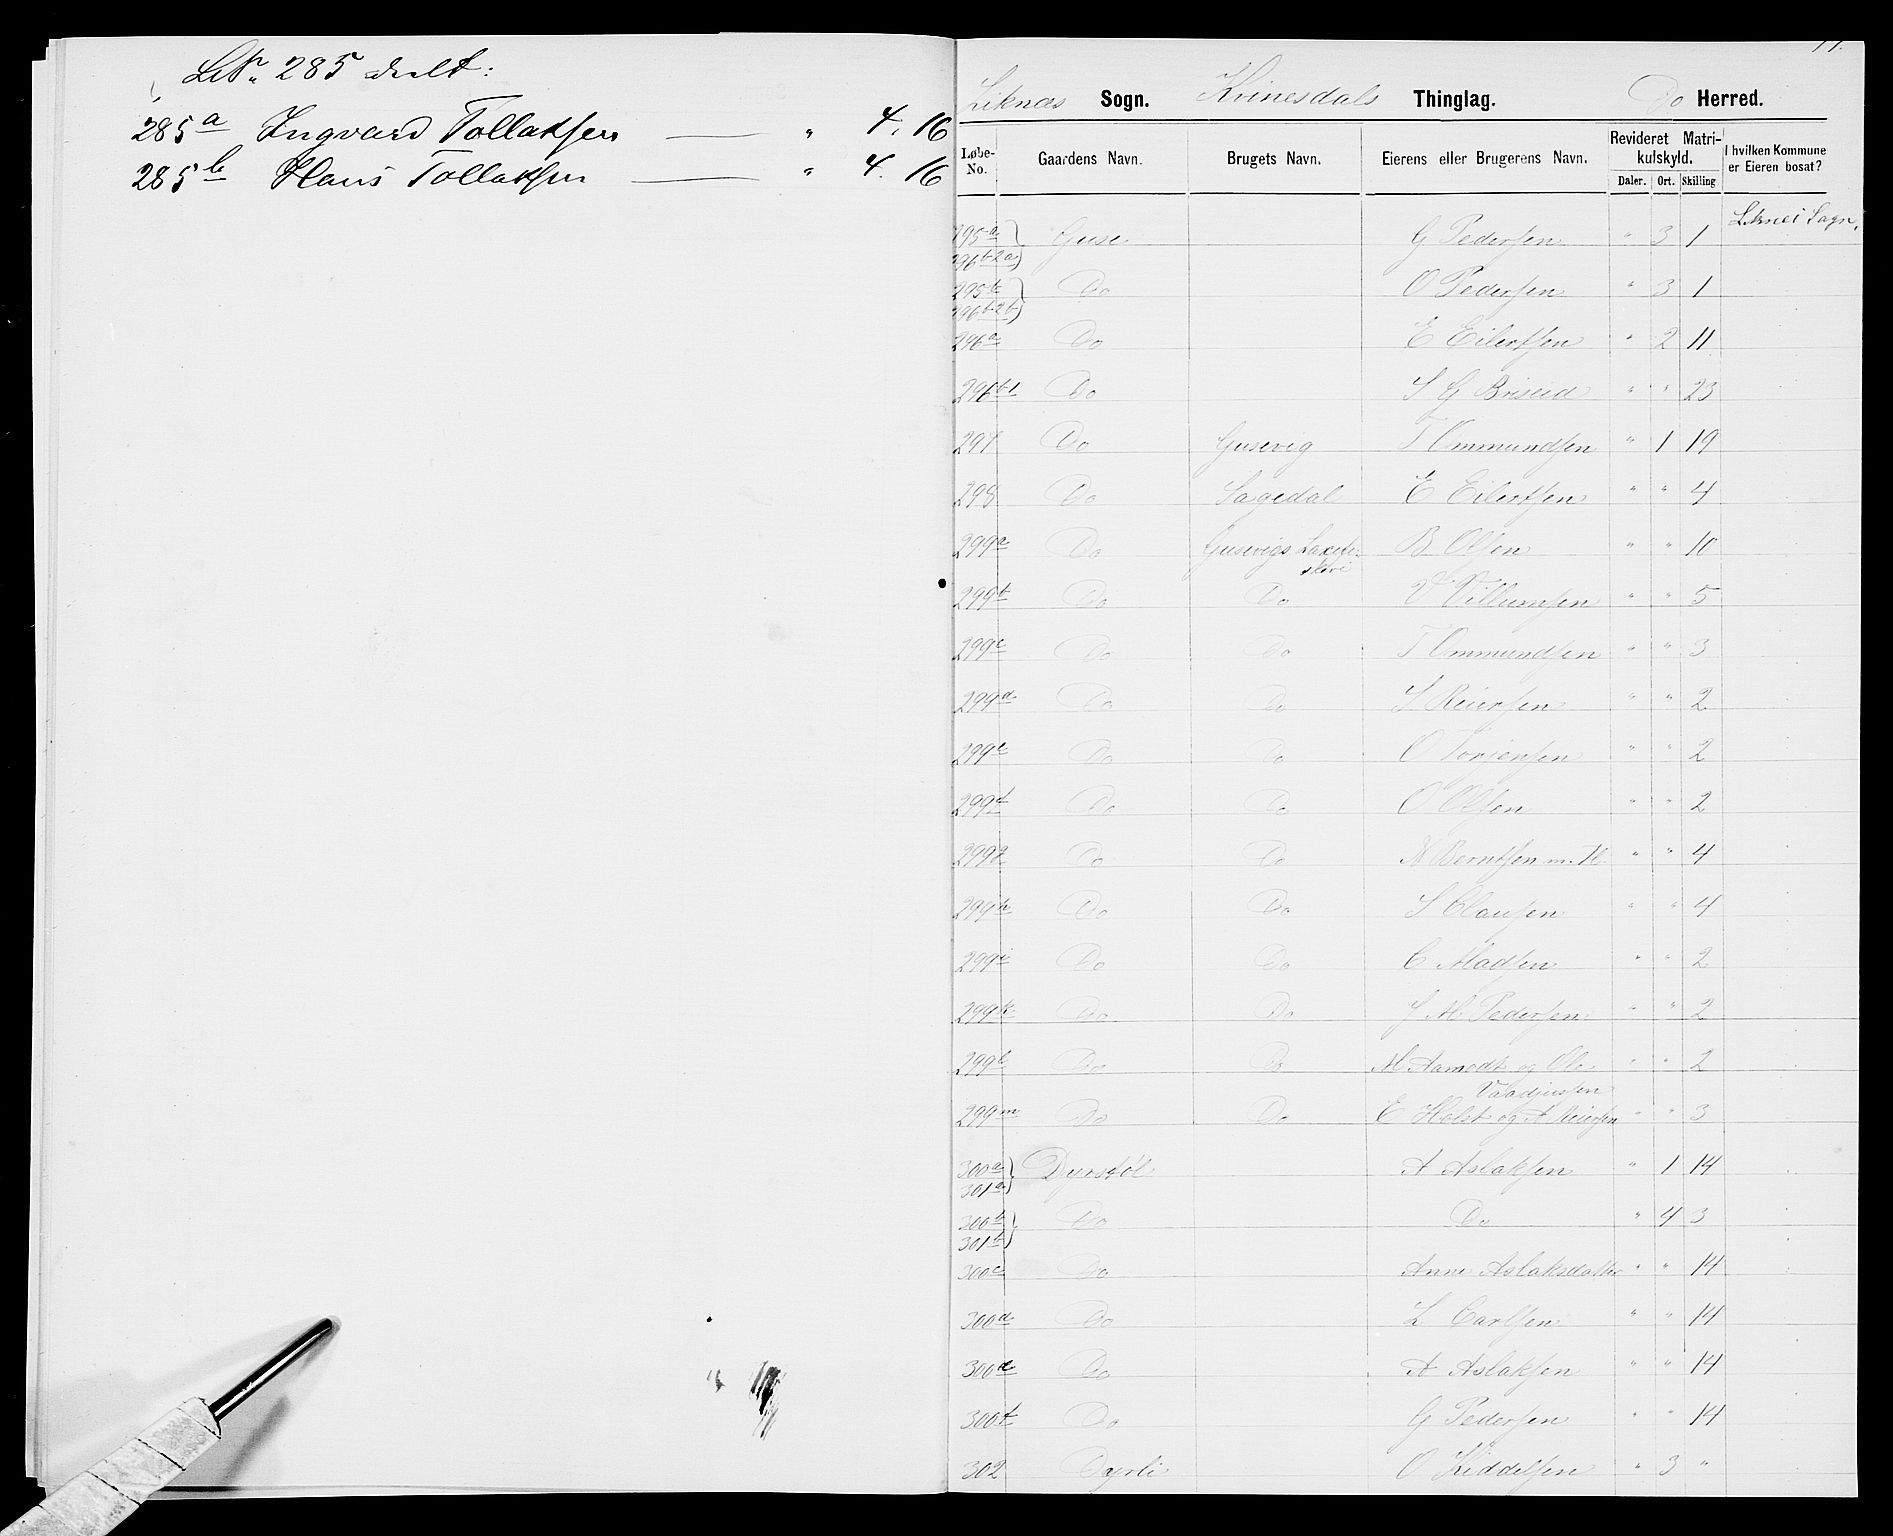 LNr. 285 delt:
285a Ingvard Tollaksen — " 4. 16
285b Hans Tollaksen — " 4. 16
Liknes Sogn. Kvinesdals Thinglag. Do Herred.
Løbe-No. Gaardens Navn. Brugets Navn. Eierens eller Brugerens Navn. Revideret Matrikulskyld. Daler. Ort. Skilling I hvilken Kommune er Eieren bosat?
295a 296b2a } Guse G Pedersen " 3 1 Liknes Sogn.
295b 296b2b } Do O Pedersen " 3 1
296a Do E Eilertsen " 2 11
296b1 Do S G Briseid " " 23
297 Do Gusevig T Ommundsen " 1 19
298 Do Sagedal E Eilertsen " " 4
299a Do Gusevigs Laxefiskeri B Olsen " " 10
299b Do Do V Villumsen " " 5
299c Do Do T Ommundsen " " 3
299d Do Do S Reiersen " " 2
299e Do Do O Torjensen " " 2
299f Do Do O Olsen " " 2
299g Do Do N Berntsen m. fl. " " 4
299h Do Do S Clausen " " 4
299i Do Do C Madsen " " 2
299k Do Do J M Pedersen " " 2
299l Do Do M Aamodt og Ole " " 2
Vaadjussen
299m Do Do E Holst og A Reiersen " " 3
300a 301a } Dyrstøl A Aslaksen " 1 14
300b 301b } Do Do " 4 3
300c Do Anne Aslaksdatter " " 14
300d Do L Carlsen " " 14
300e Do A Aslaksen " " 14
300f Do G Pedersen " " 14
302 Dyrli O Kiddelsen " 3 "